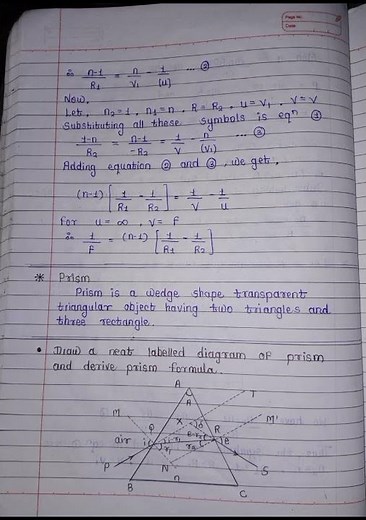 Page No.
Date:
∴ n-1/R1 = n/V1 - 1/(u) ... ②
Now,
Let, n2=1, n1=n, R=R2, u=V1, V=V
Substituting all these symbols is eqn ①
1-n/R2 = n-1/-R2 = 1/V - n/(V1) ... ③
Adding equation ② and ③, we get,
(n-1) [1/R1 - 1/R2] = 1/V - 1/u
For u=∞, V=F
∴ 1/F = (n-1) [1/R1 - 1/R2]
* Prism
Prism is a wedge shape transparent
triangular object having two triangles and
three rectangle.
• Draw a neat labelled diagram of prism
and derive prism formula.
A
A
T
M
X
M'
Q
R
air
i
r1
r2
e
P
N
S
B
n
C